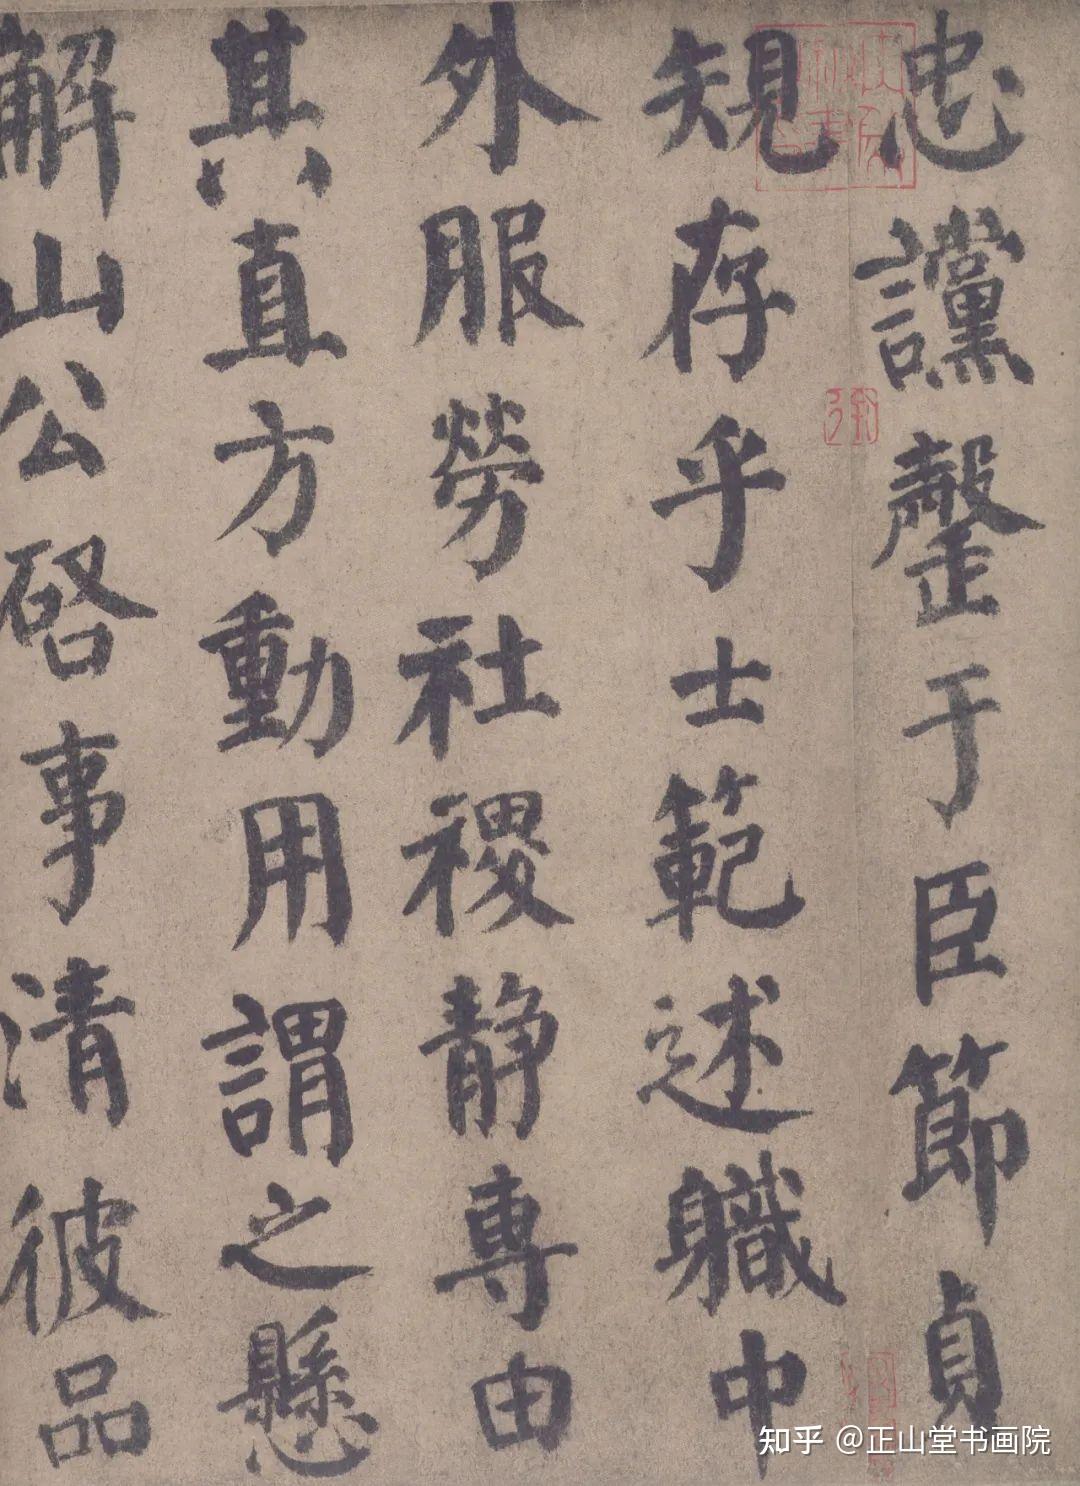 忠讜罄于臣節貞
規存乎士範述軄中
外服勞社稷静專由
其直方動用謂之懸
解山公啓事清彼品
知乎 @正山堂书画院